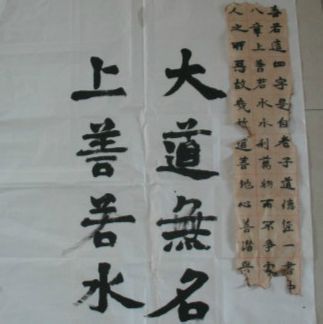 善若這四字是自老子道德經一書中
八章上善若水水利萬物而不爭
人之所惡故幾於道善地心善
大道無名
上善若水